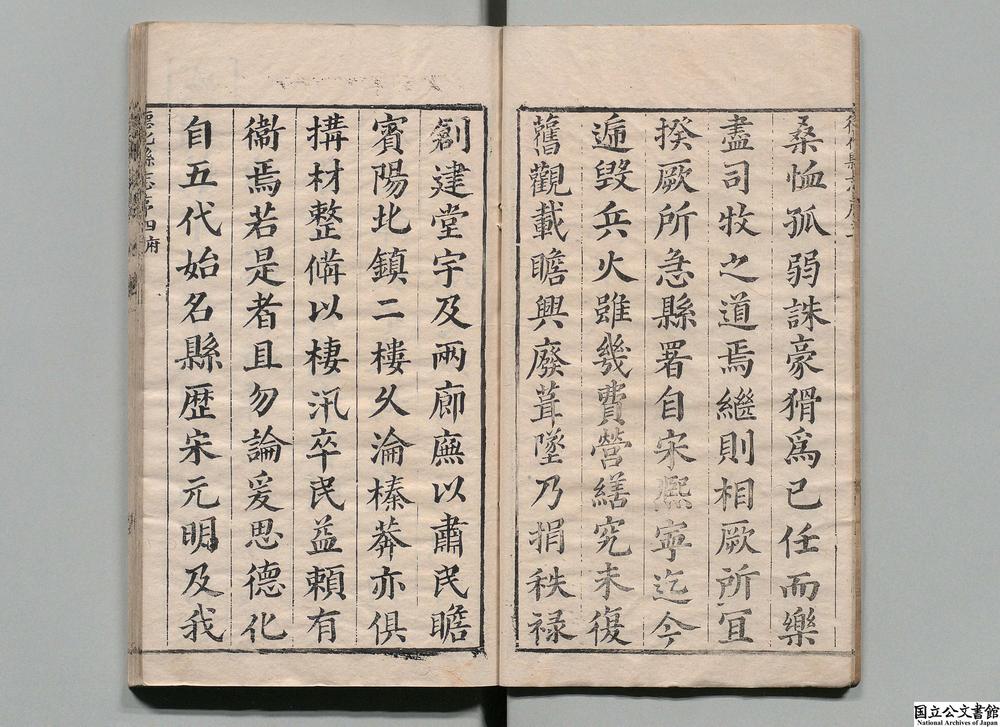 桑恤孤弱誅豪猾爲已任而樂
盡司牧之道焉繼則相厥所宜
揆厥所急縣署自宋熈寧迄今
遞毀兵火雖幾費營繕究未復
舊觀載瞻興廢葺墜乃捐秩禄
創建堂宇及兩廊廡以肅民瞻
賓陽北鎮二樓久淪榛莽亦俱
搆材整備以棲汛卒民益賴有
衞焉若是者且勿論爰思德化
自五代始名縣歴宋元明及我
德化縣志序四府
国立公文書館
National Archives of Japan